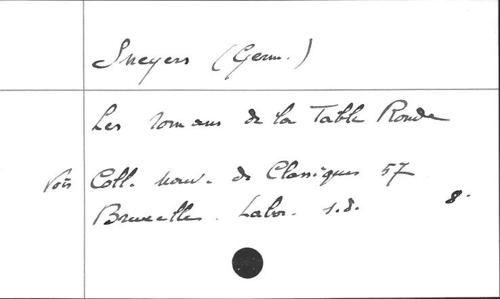 Sneyers (Germ.)
Les romans de la Table Ronde
Voir Coll. nouv. de Classiques 57
Bruxelles. Labor. s.d. 8.